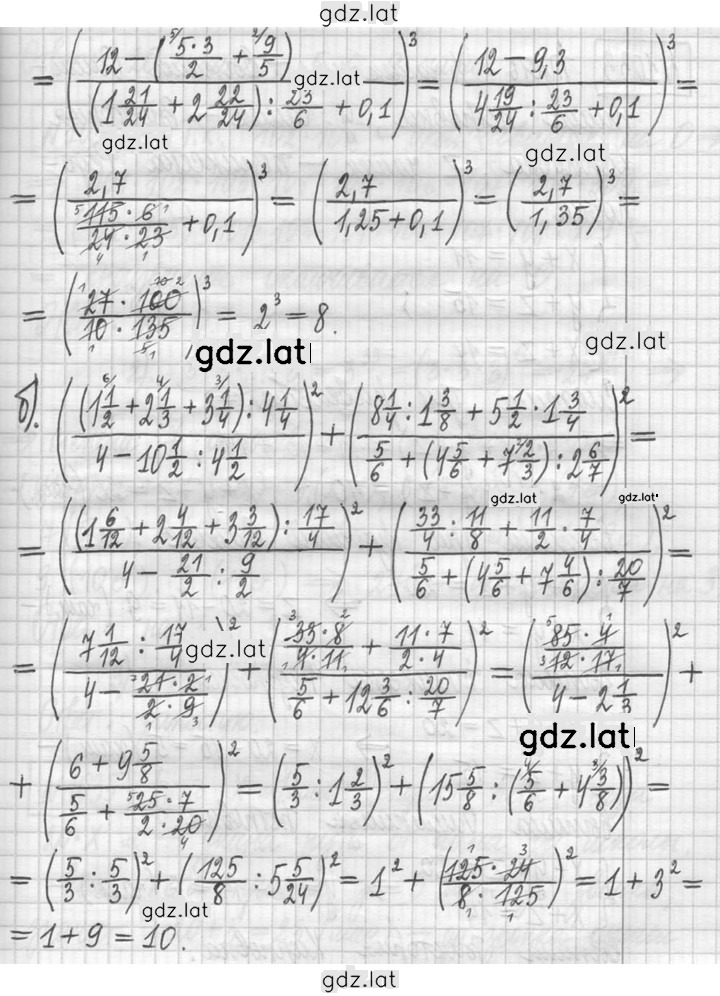 gdz.lat
= ((12 − (5·3/2 + 9/5)) / ((1 21/24 + 2 22/24) : 23/6 + 0,1))³ = ((12 − 9,3) / (4 19/24 : 23/6 + 0,1))³ =
gdz.lat
gdz.lat
gdz.lat
= (2,7 / (115·6 / 24·23 + 0,1))³ = (2,7 / (1,25 + 0,1))³ = (2,7 / 1,35)³ =
= (27·100 / 10·135)³ = 2³ = 8.
gdz.lat
gdz.lat
б). (((1 1/2 + 2 1/3 + 3 1/4) : 4 1/4) / (4 − 10 1/2 : 4 1/2))² + ((8 1/4 : 1 3/8 + 5 1/2 · 1 3/4) / (5/6 + (4 5/6 + 7 2/3) : 2 6/7))² =
gdz.lat
gdz.lat
= (((1 6/12 + 2 4/12 + 3 3/12) : 17/4) / (4 − 21/2 : 9/2))² + ((33/4 : 11/8 + 11/2 · 7/4) / (5/6 + (4 5/6 + 7 4/6) : 20/7))² =
= ((7 1/12 : 17/4) / (4 − 21·2 / 2·9))² + ((33·8 / 4·11 + 11·7 / 2·4) / (5/6 + 12 3/6 : 20/7))² = ((85·4 / 12·17) / (4 − 2 1/3))² +
gdz.lat
gdz.lat
+ ((6 + 9 5/8) / (5/6 + 25·7 / 2·20))² = (5/3 : 1 2/3)² + (15 5/8 : (5/6 + 4 3/8))² =
= (5/3 : 5/3)² + (125/8 : 5 5/24)² = 1² + (125·24 / 8·125)² = 1 + 3² =
gdz.lat
= 1 + 9 = 10.
gdz.lat